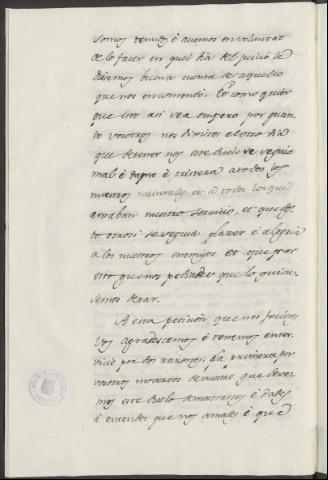 somos tenudos è avemos en voluntat
de lo facer en guel dia del juicio le
diesemos buena cuenta de aquello
que nos encomendó. Et como quier
que esto asi sea empero por quan-
to vosotros nos dixistes el otro dia
que detener nos este fecho se seguie
mal è daño è mengua a todos los
nuestros naturales, et à todos los que
amaban nuestro servicio, et que des-
to otrosi se seguia plazer è alegria
a los nuestros enemigos et que por
esto que nos pediades que lo quisie-
semos dexar.
A esta peticion que nos fecistes
vos agradecemos è tenemos en ser-
vicio por dos razones: la primera por
vosotros movervos de vuestro que dexe-
mos este fecho demostrasteis è dades
à entender que nos amades è que